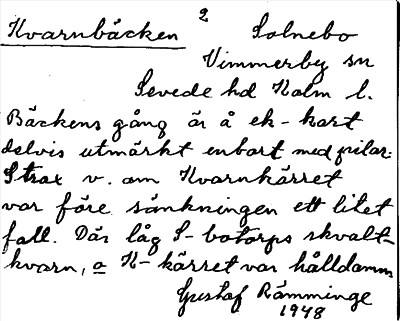 Kvarnbäcken 2 Solnebo
Vimmerby sn
Sevede hd Kalm l.
Bäckens gång är å ek-kart
delvis utmärkt enbart med pilar.
Strax v. om Kvarnkärret
var före sänkningen ett litet
fall. Där låg S-botorps skvalt-
kvarn, o K-kärret var hålldamm
Gustaf Rämminge
1948